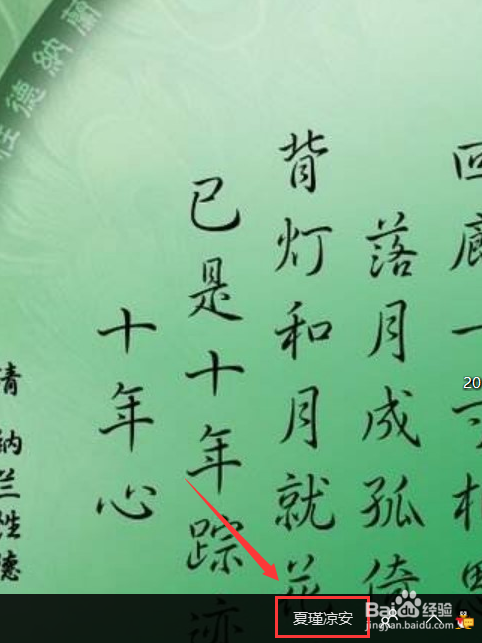 回廊一寸相思
落月成孤倚
背灯和月就花
已是十年踪迹
十年心
清 纳兰性德
蘭納德性
20
夏瑾凉安
Bai 百度 经验
jingyan.baidu.com